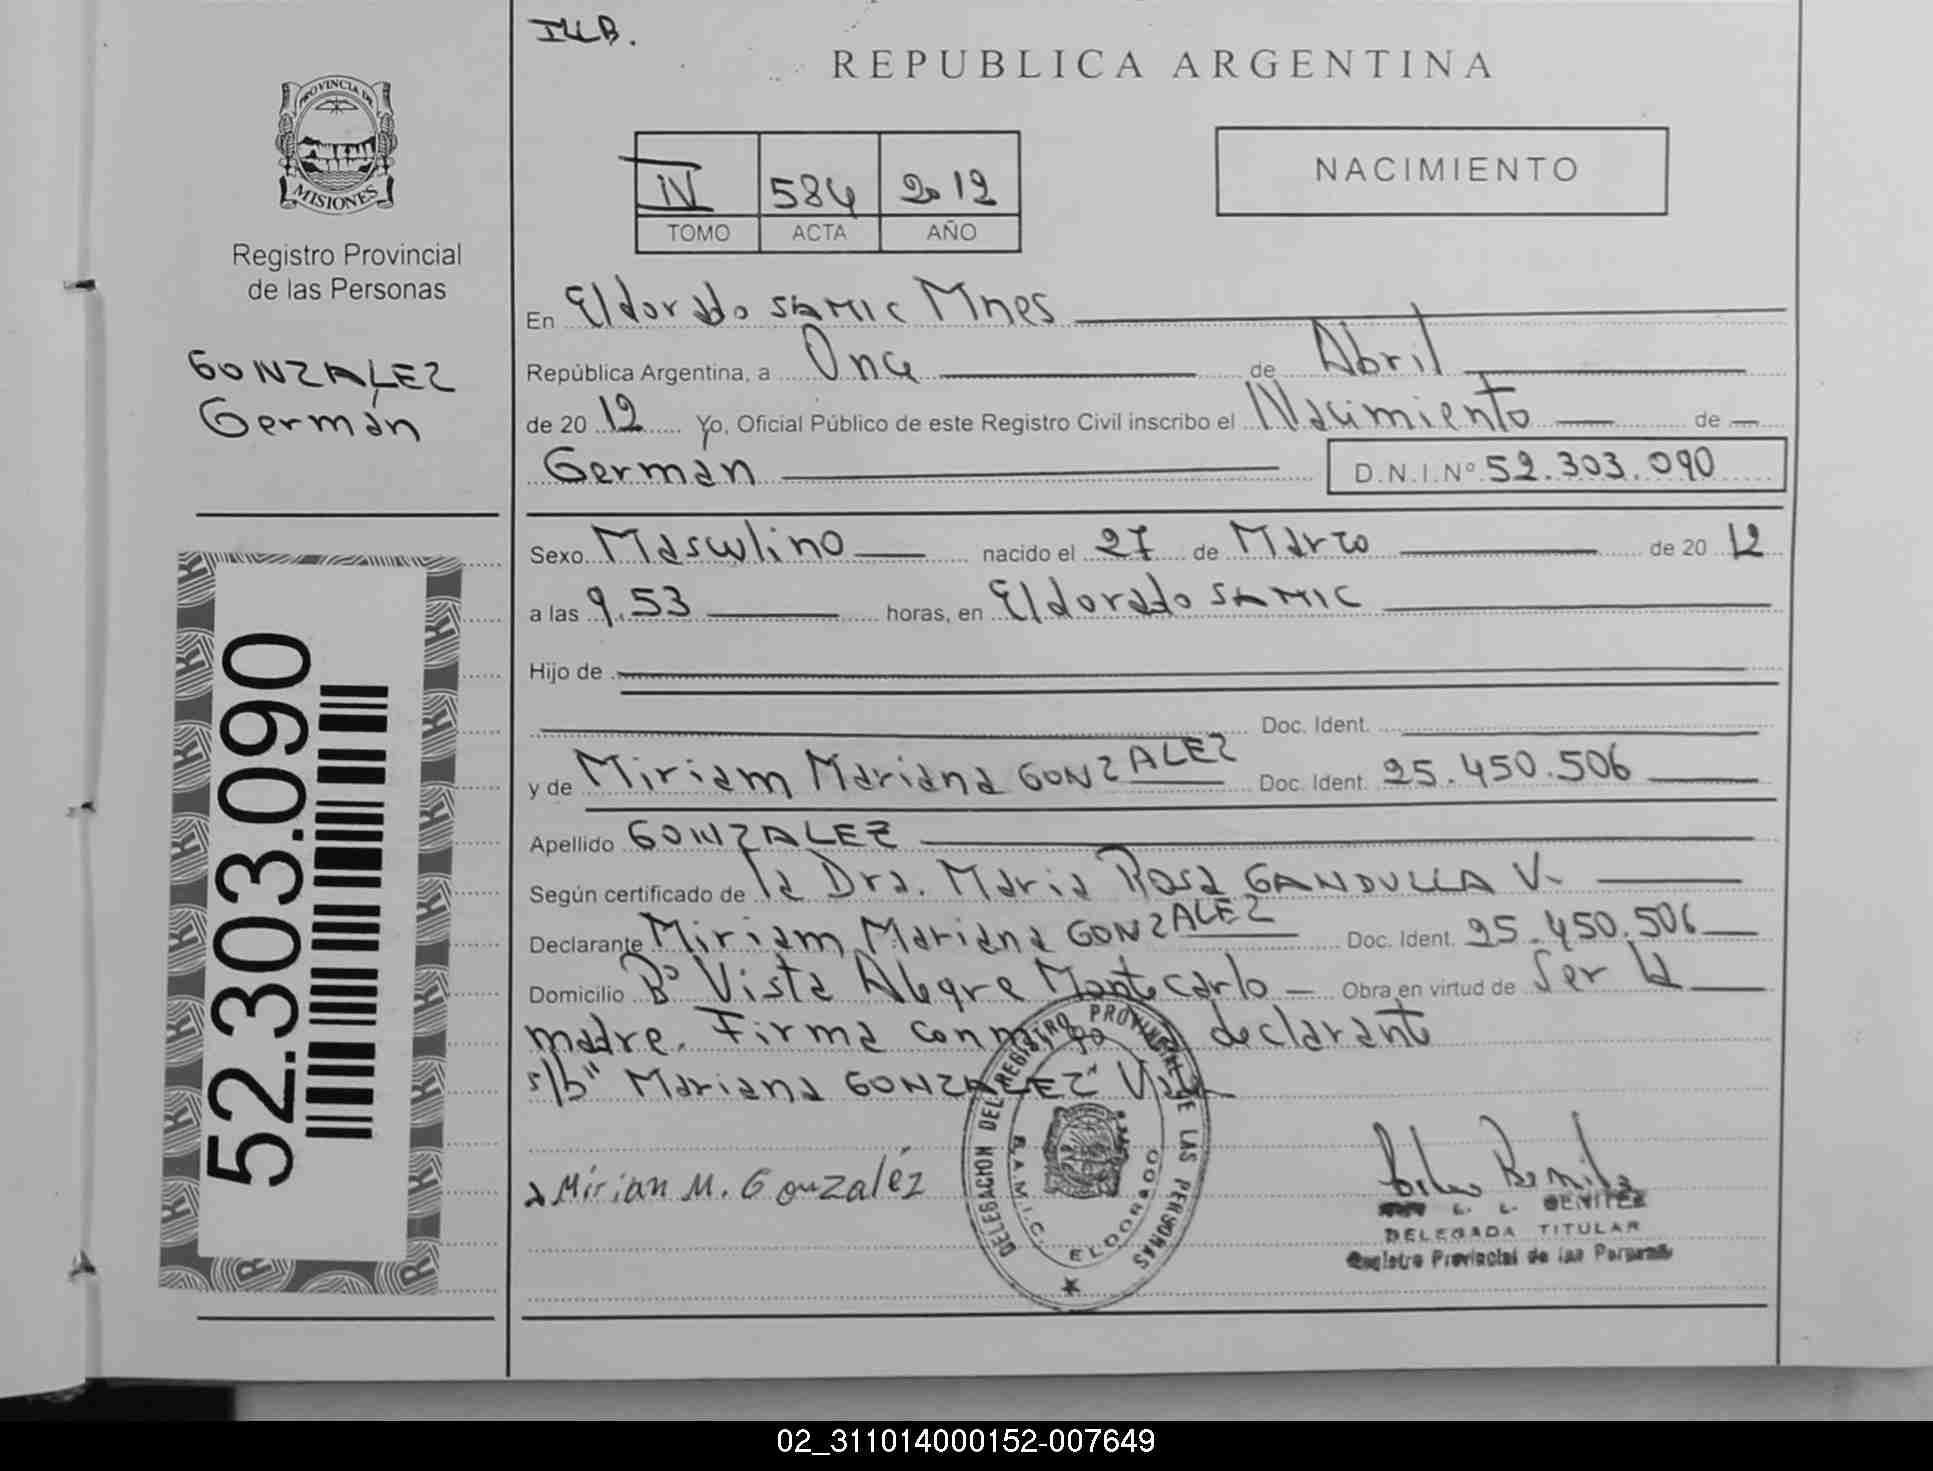 ILLB.
REPUBLICA ARGENTINA
PROVINCIA DE
MISIONES
Registro Provincial
de las Personas
GONZALEZ
Germán
52.303.090
IV 584 2012
TOMO ACTA AÑO
NACIMIENTO
En Eldorado SAMIC Mnes
República Argentina, a Once de Abril
de 2012 Yo, Oficial Público de este Registro Civil inscribo el Nacimiento de
Germán D.N.I.Nº 52.303.090
Sexo Masculino nacido el 27 de Marzo de 2012
a las 9.53 horas, en Eldorado SAMIC
Hijo de
Doc. Ident.
y de Miriam Mariana GONZALEZ Doc. Ident. 25.450.506
Apellido GONZALEZ
Según certificado de la Dra. Maria Rosa GANDULLA V.
Declarante Miriam Mariana GONZALEZ Doc. Ident. 25.450.506
Domicilio Bº Vista Alegre Montecarlo Obra en virtud de Ser la
madre. Firma conmigo declarante
s/b" Mariana GONZALEZ" Vale
Mirian M. Gonzaléz
DELEGACION DEL REGISTRO PROVINCIAL DE LAS PERSONAS
S.A.M.I.C. ELDORADO
E. L. BENITEZ
DELEGADA TITULAR
Registro Provincial de las Personas
02_311014000152-007649